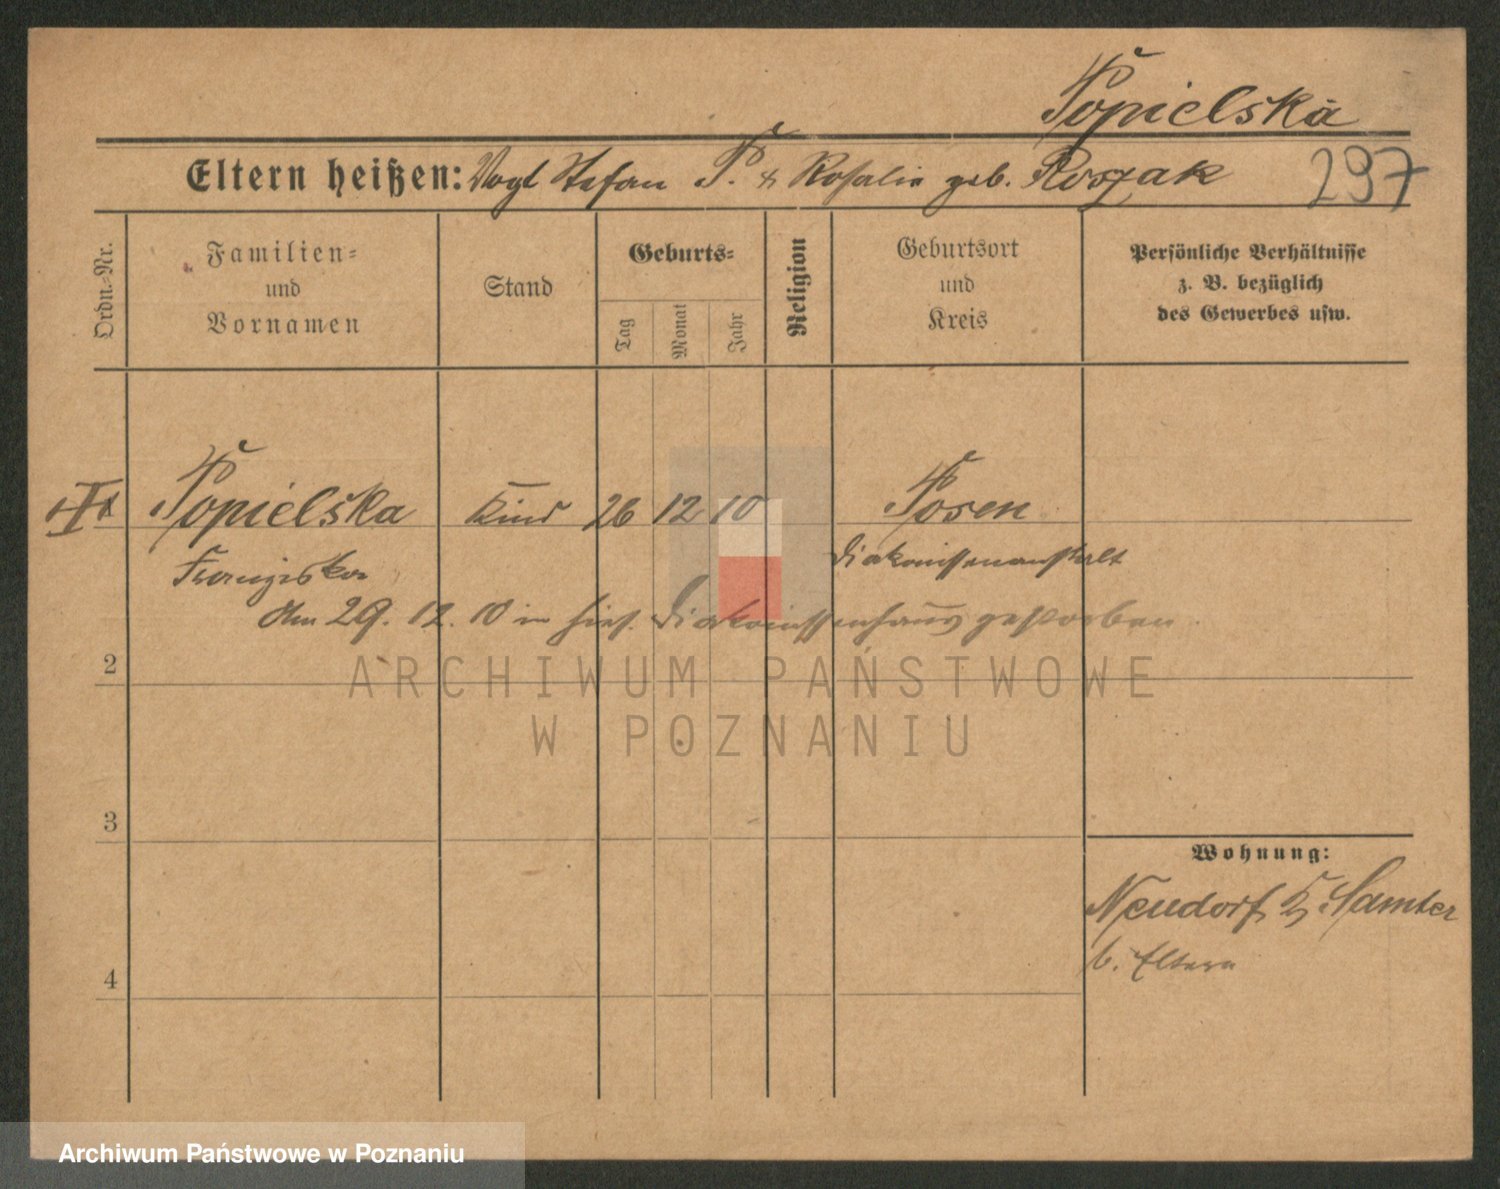 Popielska
Eltern heißen: Vogt Stefan P. & Rosalie geb. Roszak 297
Ordn.-Nr.
Familien-
und
Vornamen
Stand
Geburts-
Tag
Monat
Jahr
Religion
Geburtsort
und
Kreis
Persönliche Verhältnisse
z. B. bezüglich
des Gewerbes usw.
Popielska Kind 26 12 10 Posen
Franziska Diakonissenanstalt
Am 29. 12. 10 in hies. Diakonissenhaus gestorben.
2
ARCHIWUM PAŃSTWOWE
W POZNANIU
3
Wohnung:
Neudorf Samter
b. Eltern
4
Archiwum Państwowe w Poznaniu